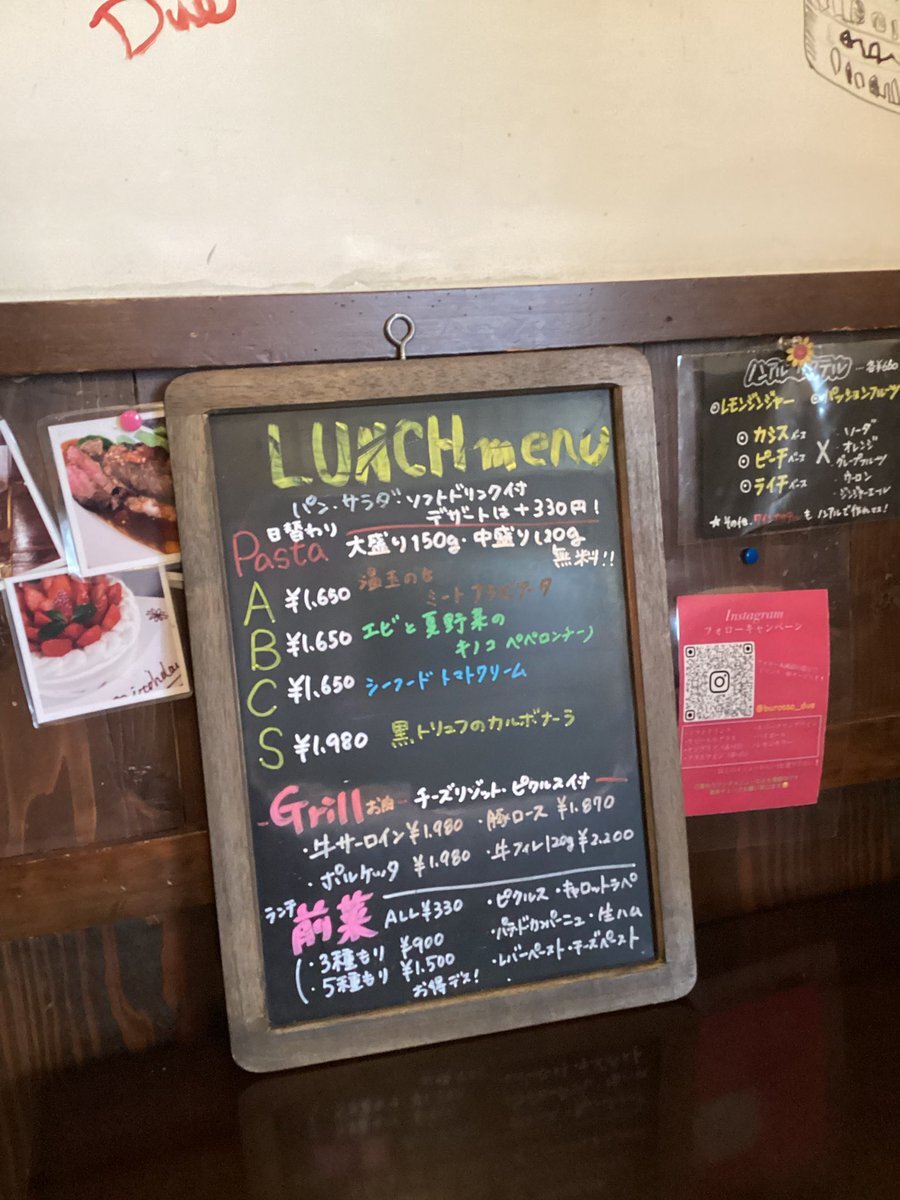 Due
LUNCH menu
パン・サラダ・ソフトドリンク付
デザートは+330円!
日替わり
Pasta 大盛り150g・中盛り120g
無料!!
A ¥1.650 温玉のせ
ミートアラビアータ
B ¥1.650 エビと夏野菜の
キノコペペロンチーノ
C ¥1.650 シーフードトマトクリーム
S ¥1.980 黒トリュフのカルボナーラ
Grill お肉 チーズリゾット・ピクルス付
・牛サーロイン¥1.980 ・豚ロース ¥1.870
・ポルケッタ ¥1.980 ・牛フィレ120g¥2.200
ランチ
前菜 ALL¥330
・3種もり ¥900
・5種もり ¥1.500
お得デス!
・ピクルス ・キャロットラペ
・パテドカンパーニュ ・生ハム
・レバーペースト・チーズペースト
ノンアルカクテル …各¥660
レモンジンジャー パッションフルーツ
カシスベース
ピーチベース
ライチベース
X
ソーダ
オレンジ
グレープフルーツ
ウーロン
ジンジャーエール
★その他、 もノンアルで作れます!
Instagram
フォローキャンペーン
@burosso_due